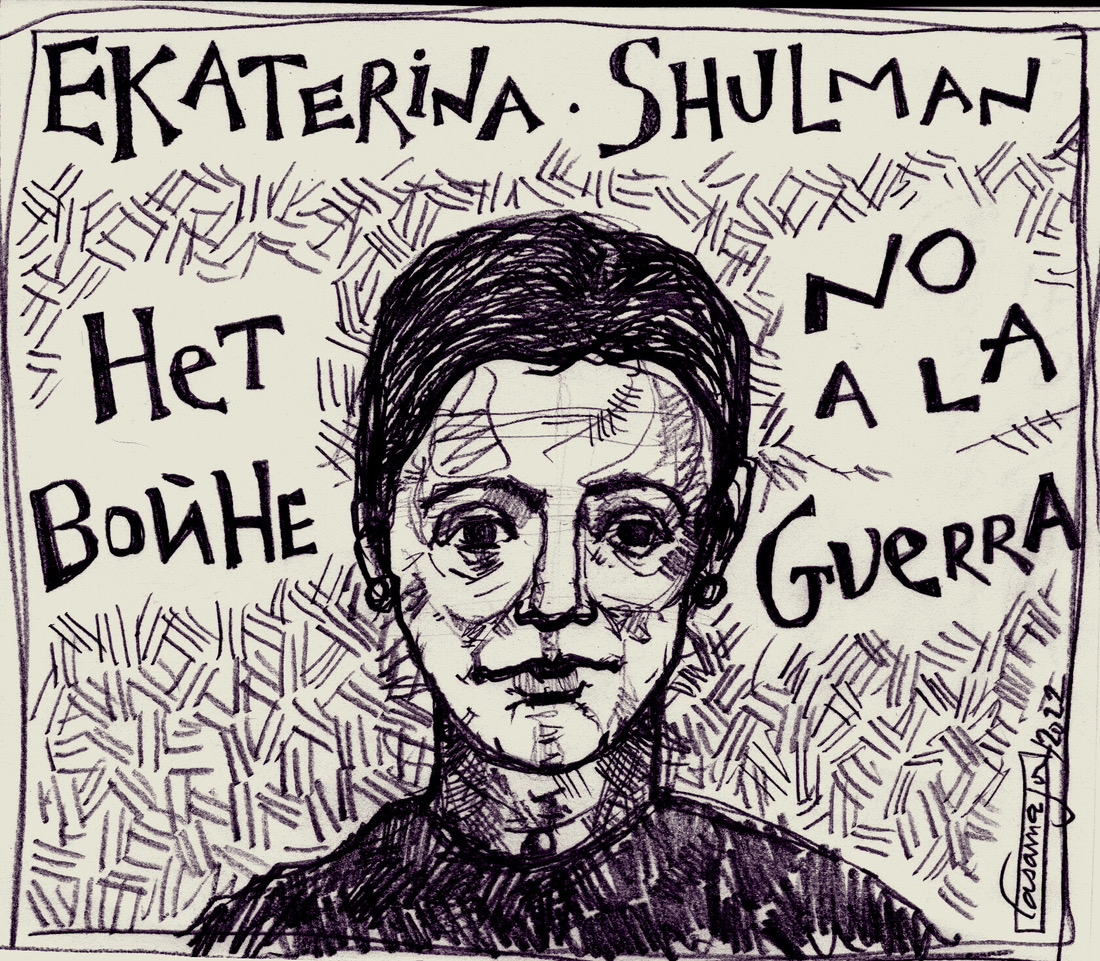 EKATERINA · SHULMAN
Нет
Войне
NO
A LA
GUERRA
Casama
2022